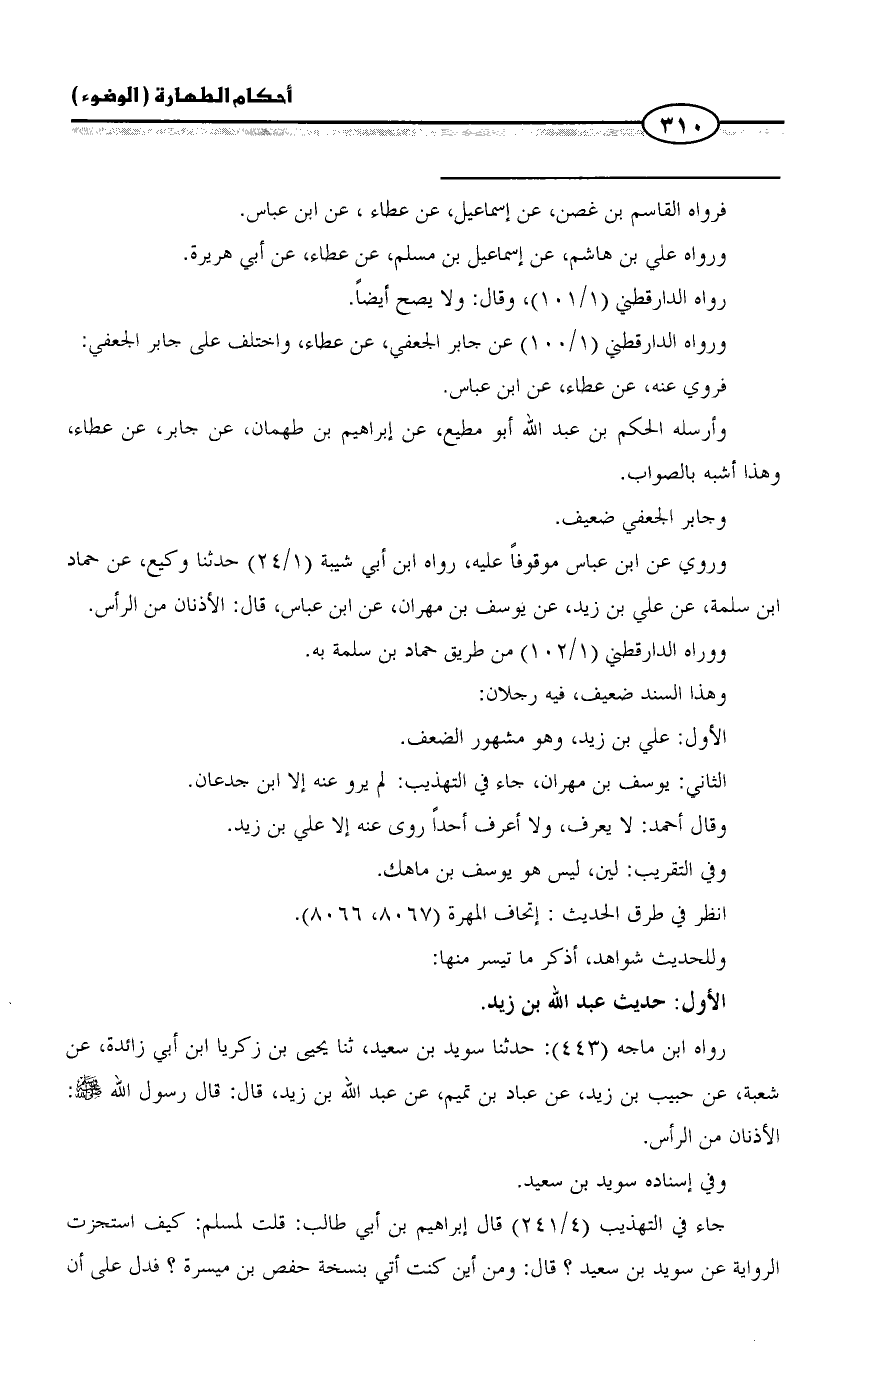 أحكام الطهارة (الوضوء)
٣١٠
فرواه القاسم بن غصن، عن إسماعيل، عن عطاء ، عن ابن عباس.
ورواه علي بن هاشم، عن إسماعيل بن مسلم، عن عطاء، عن أبي هريرة.
رواه الدارقطني (١٠١/١)، وقال: ولا يصح أيضاً.
ورواه الدارقطني (١٠٠/١) عن جابر الجعفي، عن عطاء، واختلف على جابر الجعفي:
فروي عنه، عن عطاء، عن ابن عباس.
وأرسله الحكم بن عبد الله أبو مطيع، عن إبراهيم بن طهمان، عن جابر، عن عطاء،
وهذا أشبه بالصواب.
وجابر الجعفي ضعيف.
وروي عن ابن عباس موقوفاً عليه، رواه ابن أبي شيبة (٢٤/١) حدثنا وكيع، عن حماد
ابن سلمة، عن علي بن زيد، عن يوسف بن مهران، عن ابن عباس، قال: الأذنان من الرأس.
ووراه الدارقطني (١٠٢/١) من طريق حماد بن سلمة به.
وهذا السند ضعيف، فيه رجلان:
الأول: علي بن زيد، وهو مشهور الضعف.
الثاني: يوسف بن مهران، جاء في التهذيب: لم يرو عنه إلا ابن جدعان.
وقال أحمد: لا يعرف، ولا أعرف أحداً روى عنه إلا علي بن زيد.
وفي التقريب: لين، ليس هو يوسف بن ماهك.
انظر في طرق الحديث : إتحاف المهرة (٨٠٦٧، ٨٠٦٦).
وللحديث شواهد، أذكر ما تيسر منها:
الأول: حديث عبد الله بن زيد.
رواه ابن ماجه (٤٤٣): حدثنا سويد بن سعيد، ثنا يحيى بن زكريا ابن أبي زائدة، عن
شعبة، عن حبيب بن زيد، عن عباد بن تميم، عن عبد الله بن زيد، قال: قال رسول الله ﷺ:
الأذنان من الرأس.
وفي إسناده سويد بن سعيد.
جاء في التهذيب (٢٤١/٤) قال إبراهيم بن أبي طالب: قلت لمسلم: كيف استجزت
الرواية عن سويد بن سعيد ؟ قال: ومن أين كنت أتي بنسخة حفص بن ميسرة ؟ فدل على أن